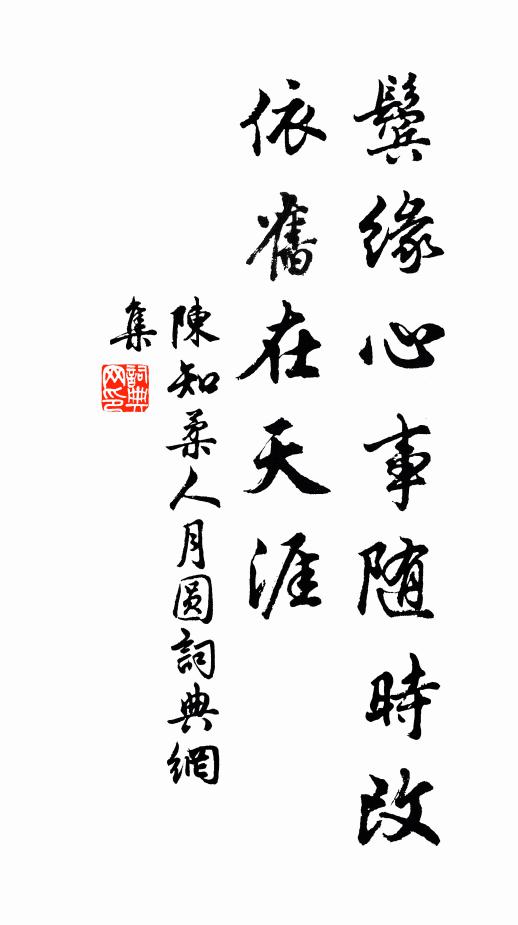 鬓緣心事随時改
依舊在天涯
陳知柔人月圆詞典網
集
詞典
网印